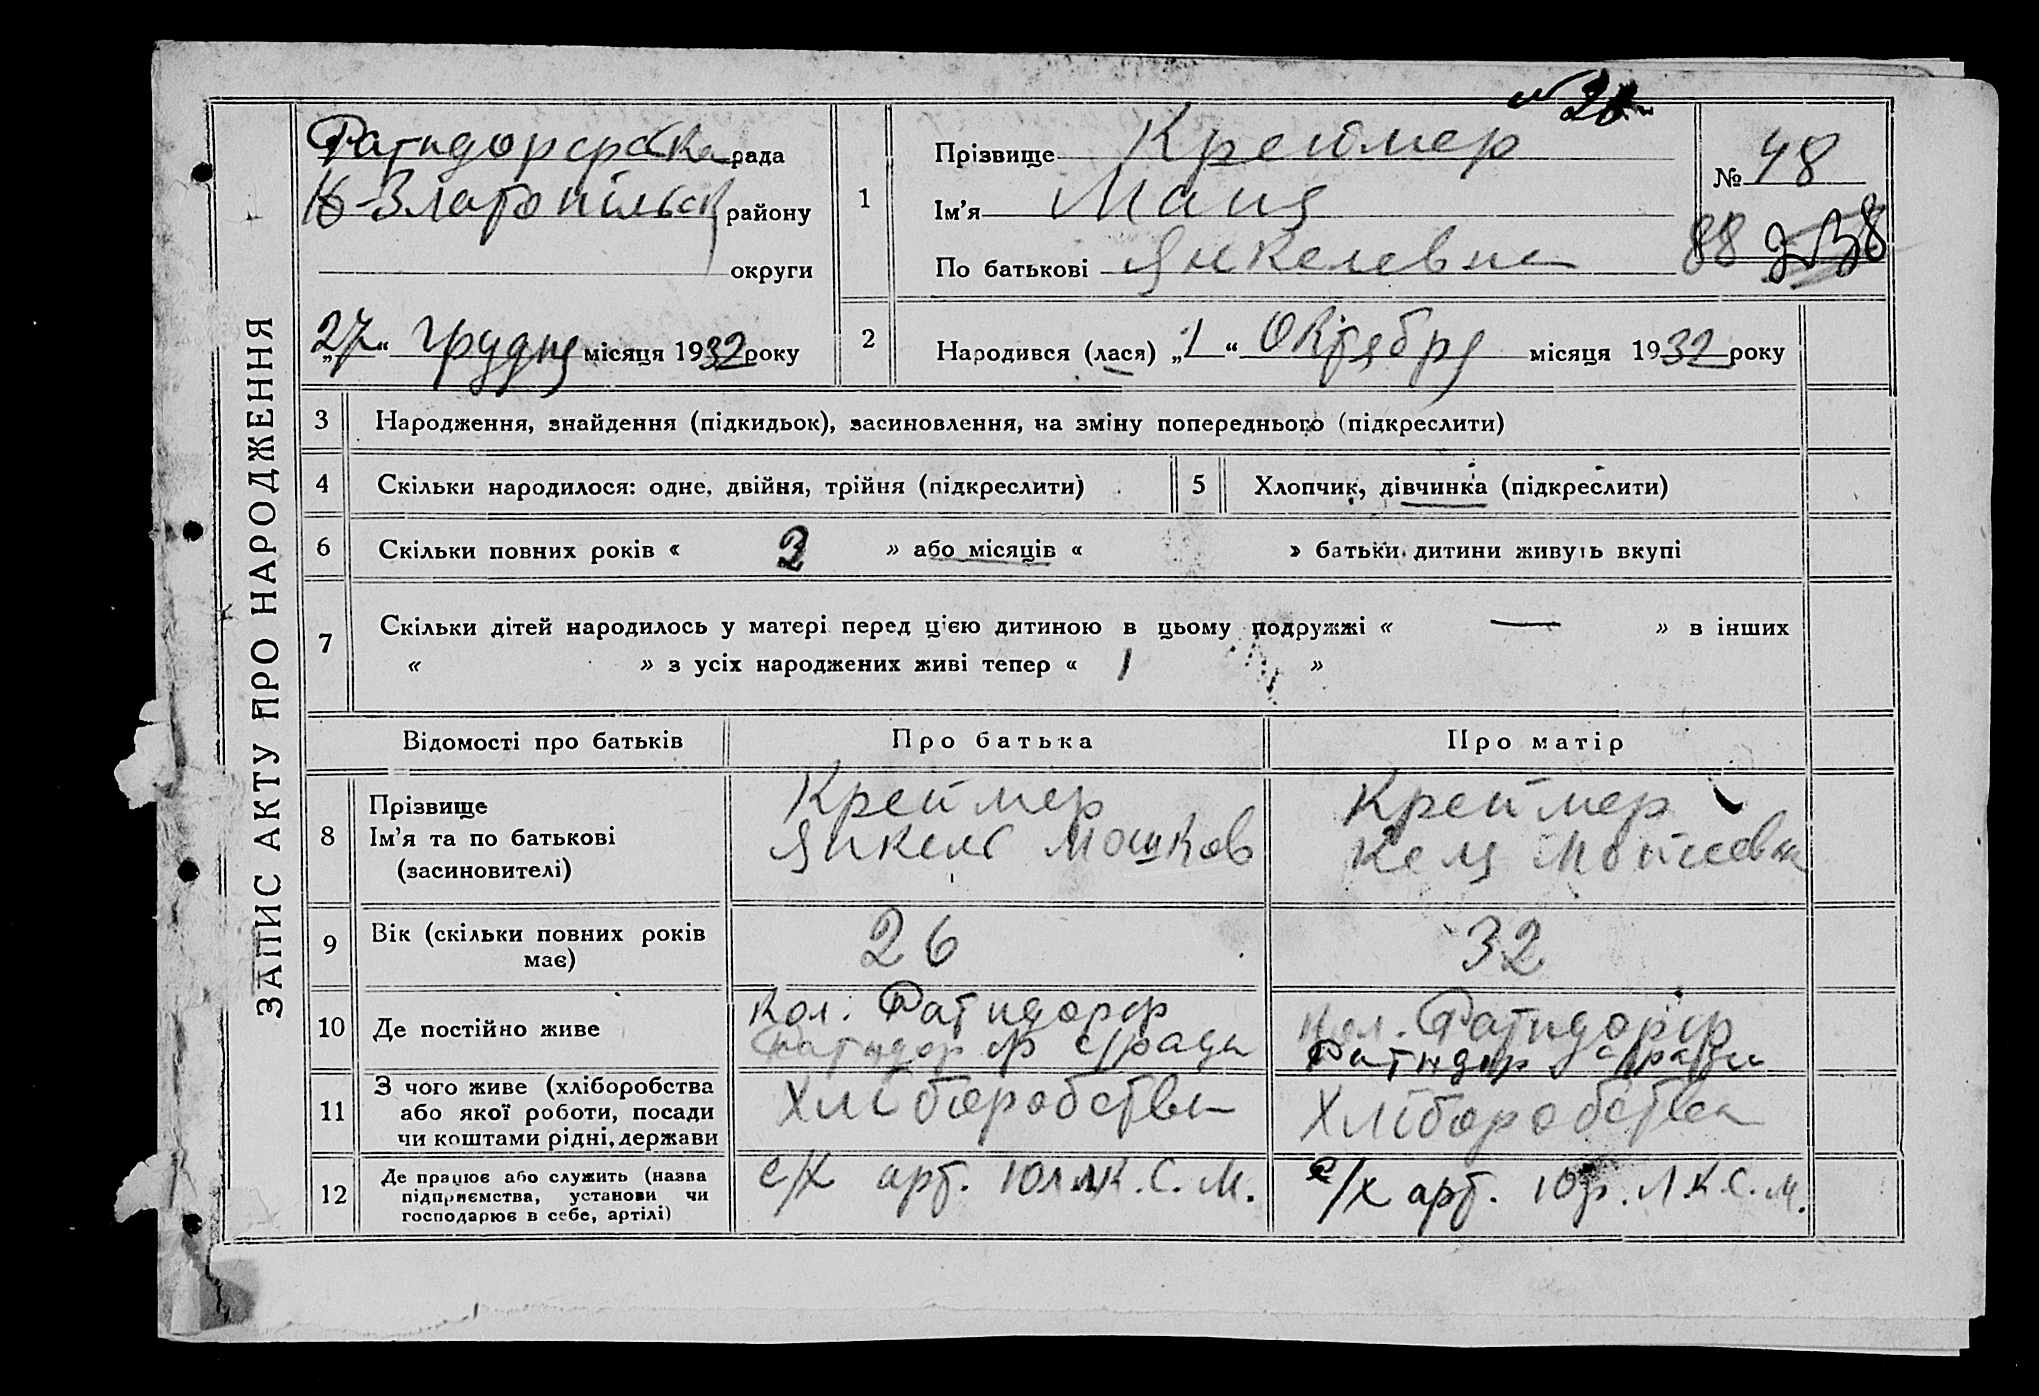 ЗАПИС АКТУ ПРО НАРОДЖЕННЯ
Ратндорфська рада
Н-Златопільськ району
округи
„27“ грудня місяця 1932 року
1
Прізвище Креймер
Ім’я Маня
По батькові Янкелевна
№ 48
88
2
Народився (лася) „1“ Октября місяця 1932 року
3 Народження, знайдення (підкидьок), засиновлення, на зміну попереднього (підкреслити)
4 Скільки народилося: одне, двійня, трійня (підкреслити)
5 Хлопчик, дівчинка (підкреслити)
6 Скільки повних років « 2 » або місяців « » батьки дитини живуть вкупі
7 Скільки дітей народилось у матері перед цією дитиною в цьому подружжі « — » в інших
« » з усіх народжених живі тепер « 1 »
Відомості про батьків
Про батька
Про матір
8
Прізвище
Ім’я та по батькові
(засиновителі)
Креймер
Янкель Мошков
Креймер
Келя Мойсеевна
9
Вік (скільки повних років
має)
26
32
10 Де постійно живе
кол. Ратндорф
Ратндорф с/ради
кол. Ратндорф
Ратндорф с/ради
11
З чого живе (хліборобства
або якої роботи, посади
чи коштами рідні, держави
Хліборобства
Хліборобства
12
Де працює або служить (назва
підприємства, установи чи
господарює в себе, артілі)
с/х арт. Л.К.С.М.
с/х арт. Л.К.С.М.